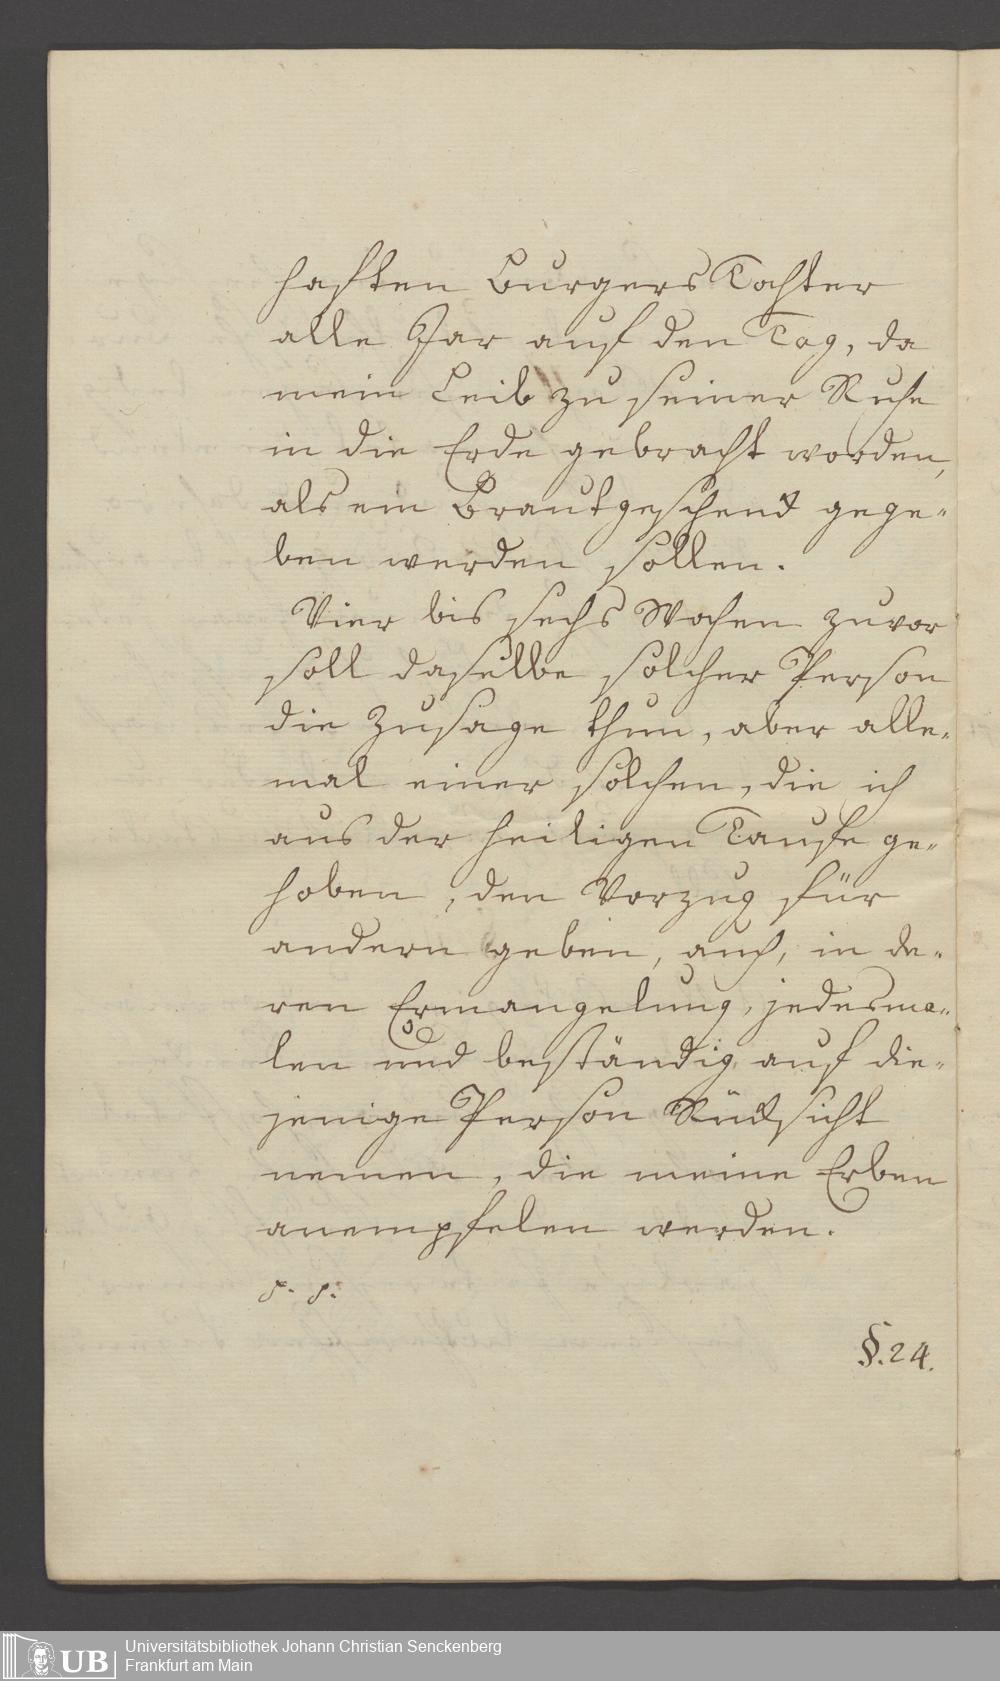 haften Burgers Tochter
alle Jar auf den Tag, da
mein Leib zu seiner Ruhe
in die Erde gebracht worden,
als ein Brautgeschenck gege-
ben werden sollen.
Vier bis sechs Wochen zuvor
soll daselbe solcher Person
die Zusage thun, aber alle-
mal einer solchen, die ich
aus der heiligen Taufe ge-
hoben, den Vorzug für
andern geben, auch, in de-
ren Ermangelung, jedesma-
len und beständig auf die-
jenige Person Rücksicht
nemen, die meine Erben
anempfelen werden.
§.24.
UB
Universitätsbibliothek Johann Christian Senckenberg
Frankfurt am Main